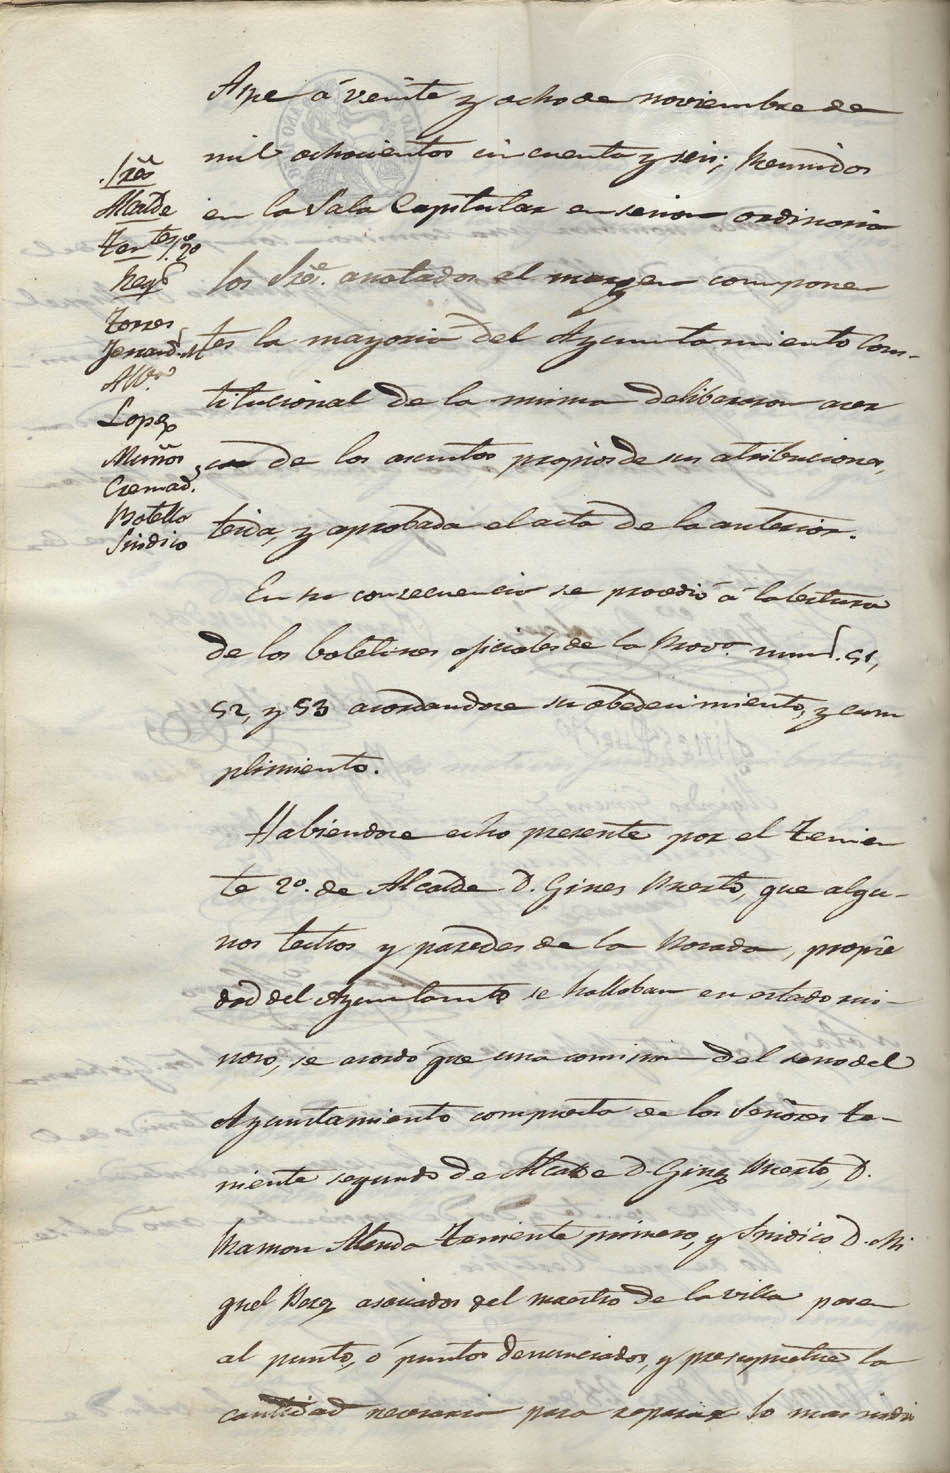 Aspe á veinte y ocho de noviembre de
mil ochocientos cincuenta y seis; Reunidos
en la Sala Capitular en sesion ordinaria
los Sres. anotados al margen componen
tes la mayoria del Ayuntamiento Cons-
titucional de la misma deliberaron acer
ca de los asuntos propios de sus atribuciones,
leida, y aprobada el acta de la anterior.
Sres
Alcalde
Tentes 1º 2º
Regs
Torres
Alvo
Lopez
Muños
Cremads
Botella
Sindico
En su consecuencia se procedió á la lectura
de los boletines oficiales de la Prova. nums. 51,
52, y 53 acordandose su obedecimiento, y cum
plimiento.
Habiendose echo presente por el Tenien
te 2º. de Alcalde D. Gines Puerto, que algu-
nos techos y paredes de la Posada, propie
dad del Ayuntamto se hallaban en estado rui-
noso, se acordó que una comision del seno del
Ayuntamiento compuesta de los Señores Te-
niente segundo de Alcalde D. Gines Puerto, D.
Ramon Teniente primero, y Sindico D. Mi
guel asociados del maestro de la villa pasen
al punto, ó puntos denunciados, y presupuestse la
cantidad necesaria para reparar lo mas indis